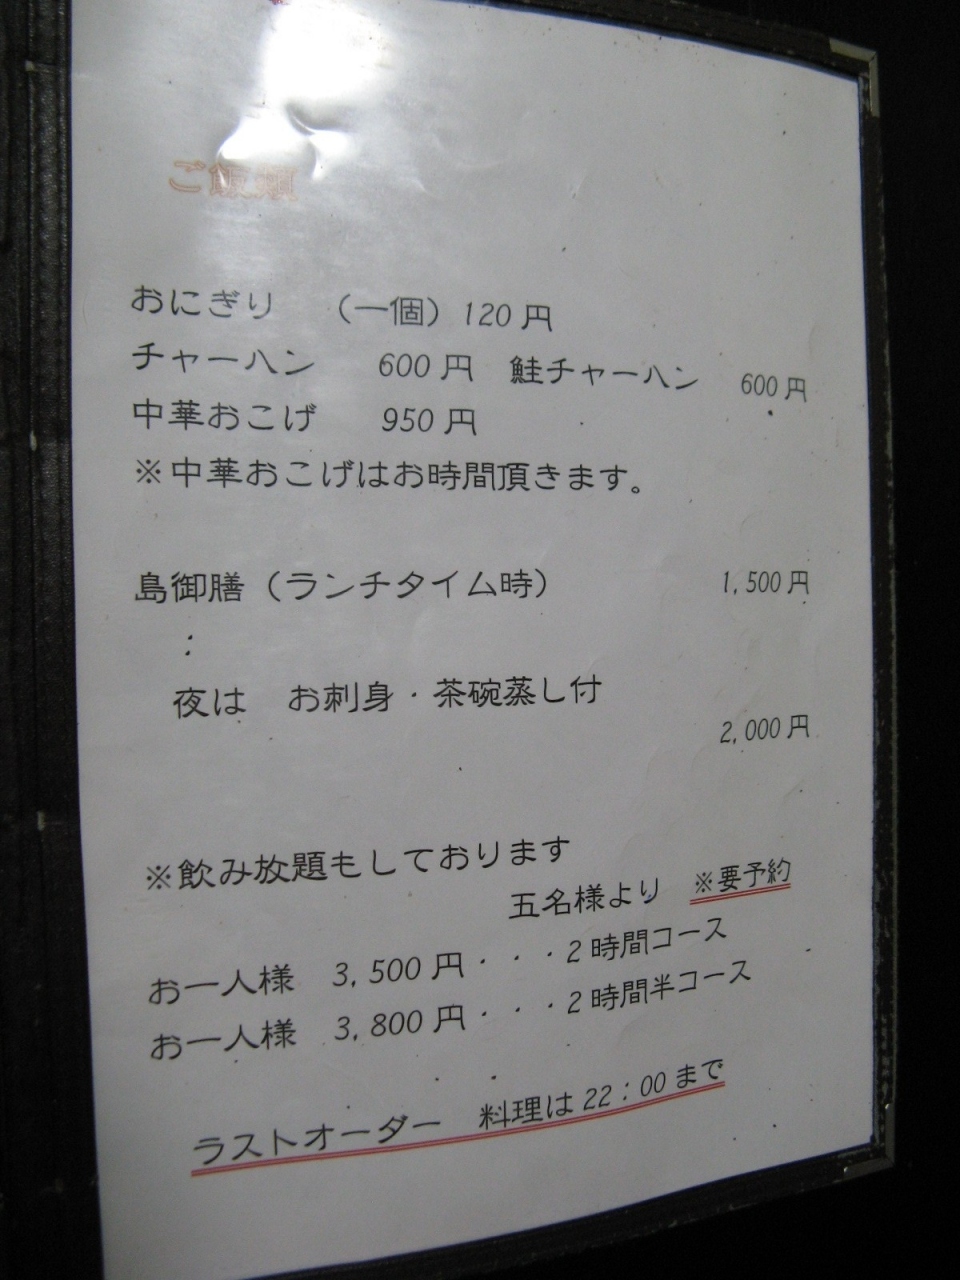 ご飯類
おにぎり （一個）120円
チャーハン 600円 鮭チャーハン 600円
中華おこげ 950円
※中華おこげはお時間頂きます。
島御膳（ランチタイム時） 1,500円
：
夜は お刺身・茶碗蒸し付
2,000円
※飲み放題もしております
五名様より ※要予約
お一人様 3,500円・・・2時間コース
お一人様 3,800円・・・2時間半コース
ラストオーダー 料理は22：00まで